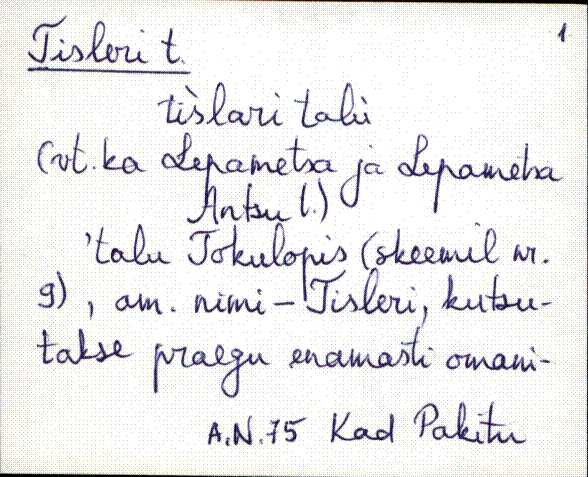 1
Tisleri t.
tìslari talu
(vt. ka Lepametsa ja Lepametsa
Antsu t.)
'talu Tokulopis (skeemil nr.
9), am. nimi – Tisleri, kutsu-
takse praegu enamasti omani-
A.N. 75 Kad Pakitu